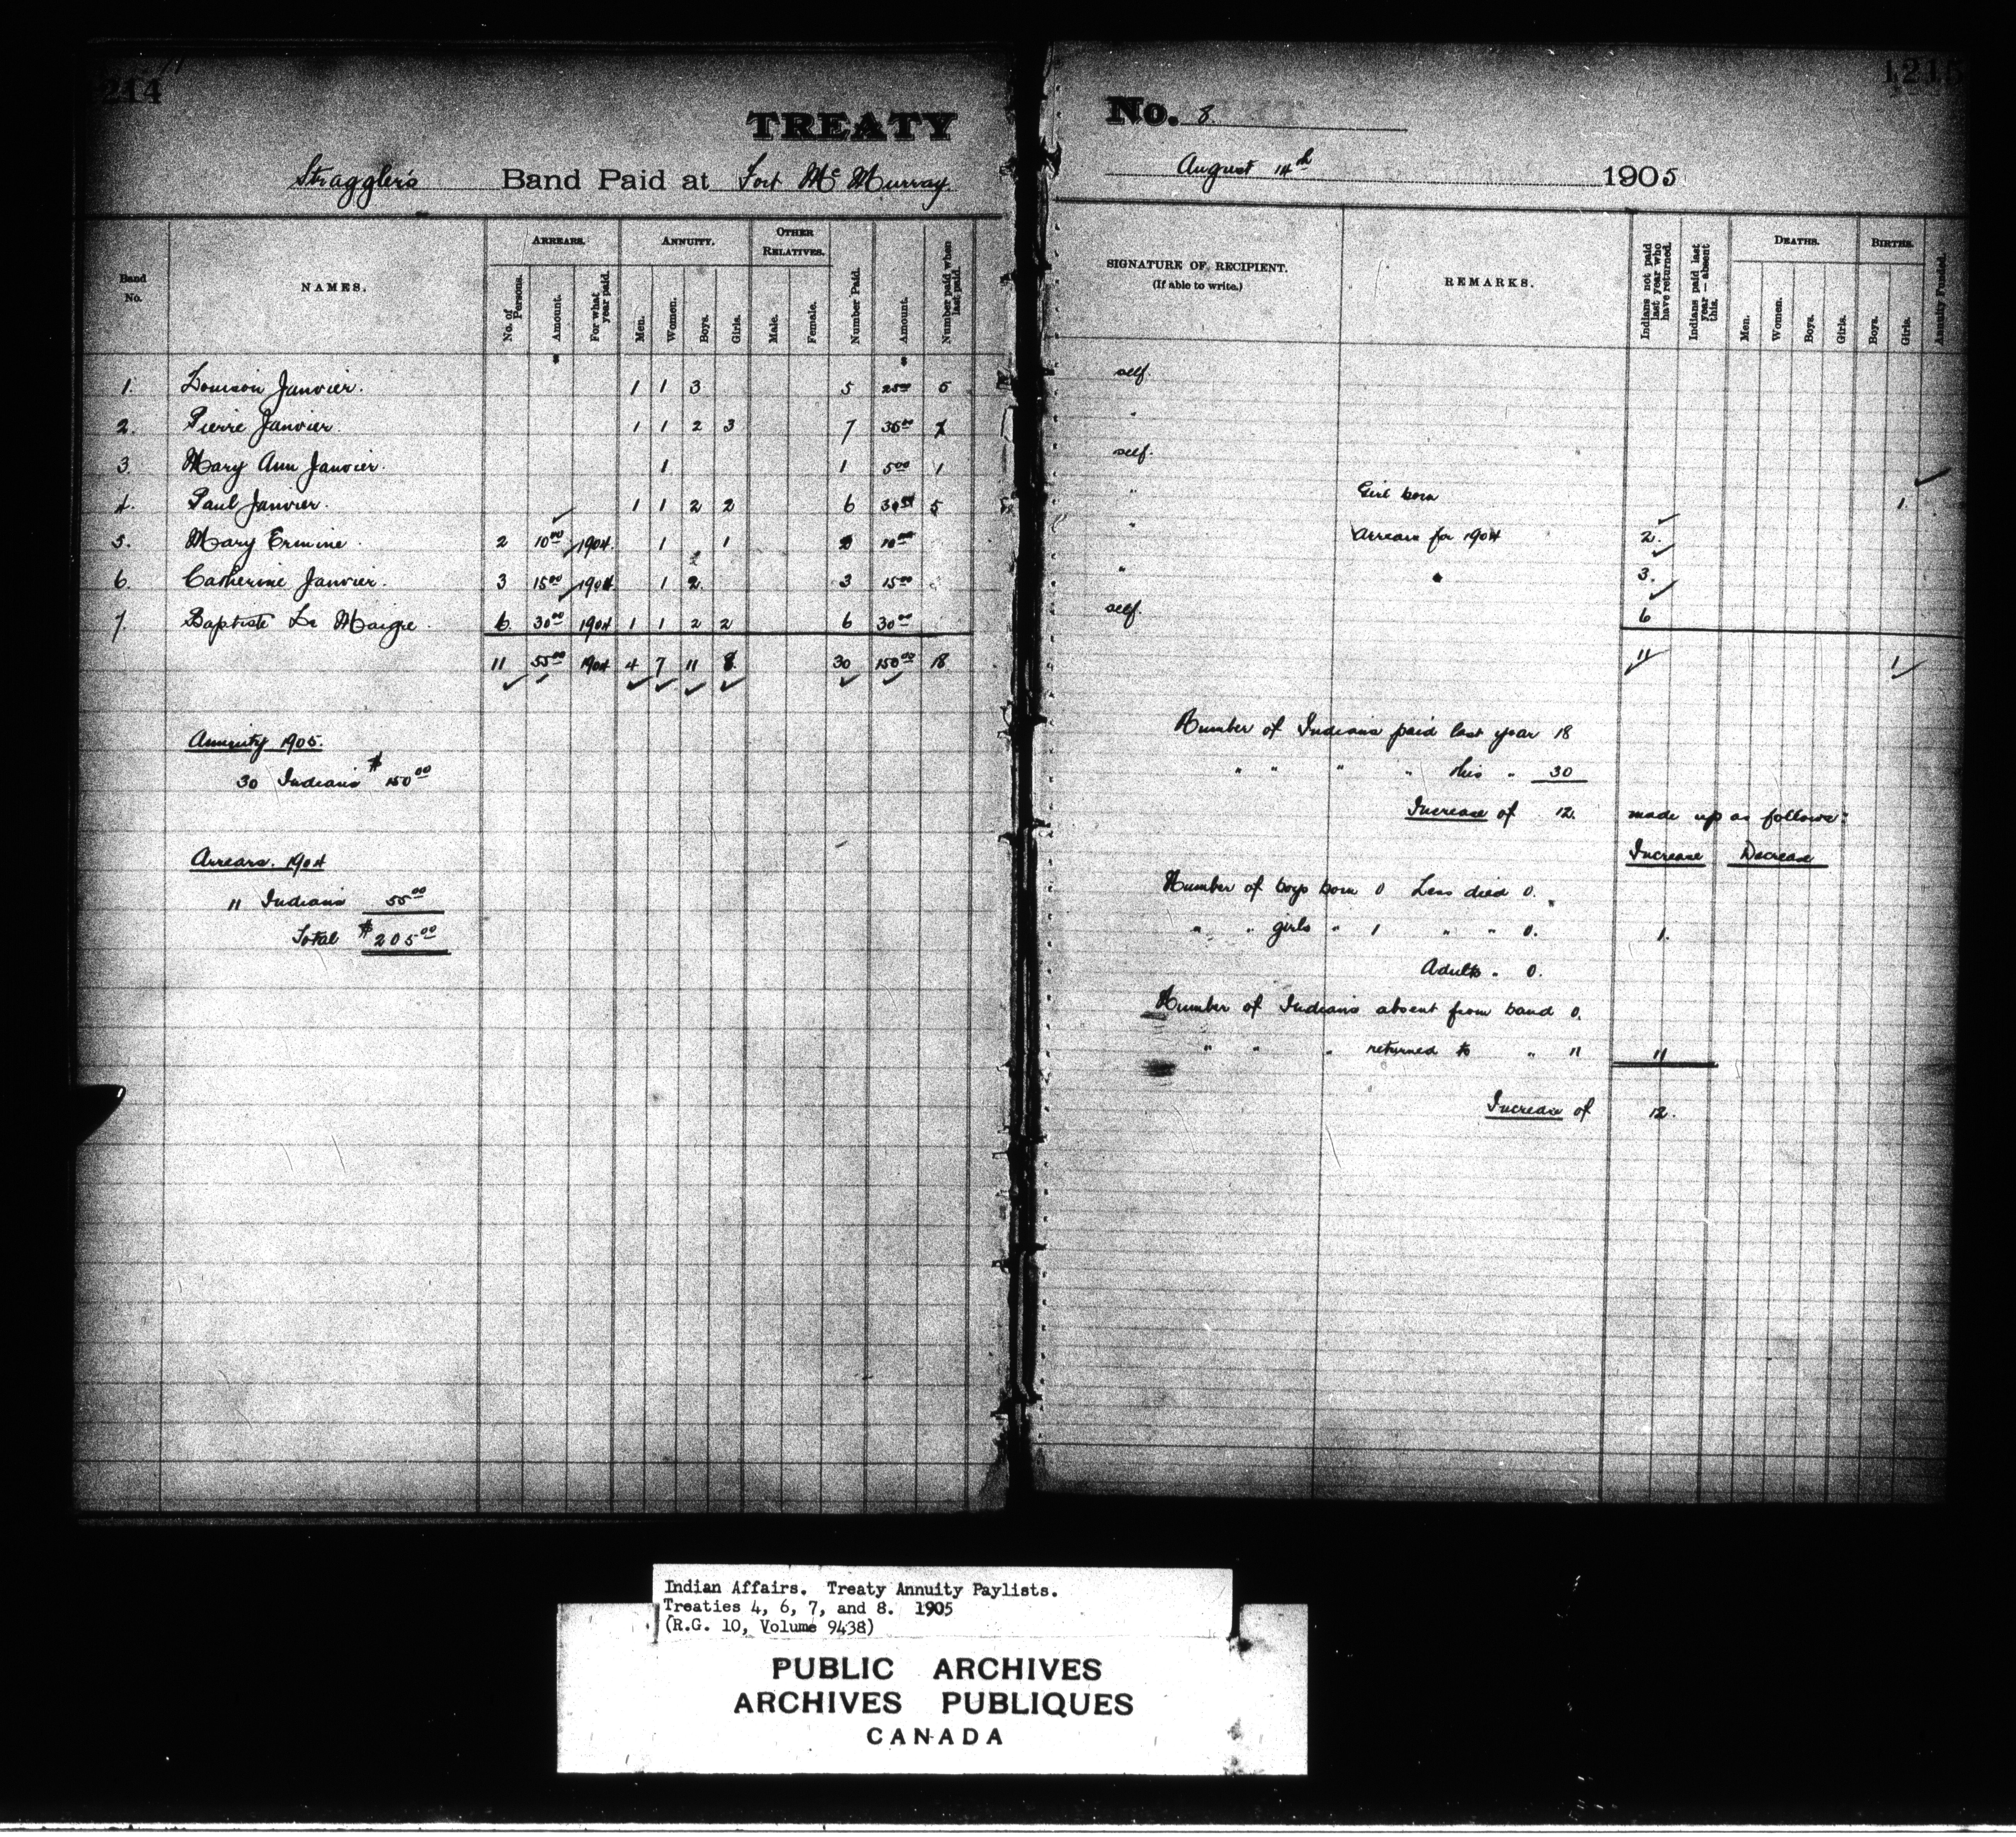 1214
TREATY
Straggler's Band Paid at Fort Mc Murray
Band No. NAMES. ARREARS. No. of Persons. Amount. For what year paid. ANNUITY. Men. Women. Boys. Girls. OTHER RELATIVES. Male. Female. Number Paid. Amount. Number paid when last paid.
1. Louison Janvier. 1 1 3 5 25 00 5
2. Pierre Janvier. 1 1 2 3 7 35 00 7
3. Mary Ann Janvier. 1 1 5 00 1
4. Paul Janvier. 1 1 2 2 6 30 00 5
5. Mary Ermine. 2 10 00 1904. 1 1 2 10 00
6. Catherine Janvier. 3 15 00 1904 1 2 3 15 00
7. Baptiste Le Maigre. 6 30 00 1904 1 1 2 2 6 30 00
11 55 00 1904 4 7 11 8 30 150 00 18
Annuity 1905.
30 Indians $150 00
Arrears. 1904
11 Indians 55 00
Total $205 00
1215
No. 8
August 14th 1905
SIGNATURE OF RECIPIENT. (If able to write.) REMARKS. Indians not paid last year who have returned. Indians paid last year—absent this. DEATHS. Men. Women. Boys. Girls. BIRTHS. Boys. Girls. Annuity Funded.
self.
"
self.
" Girl born 1.
" Arrears for 1904 2.
" " 3.
self. 6
11 1
Number of Indians paid last year 18
" " " " this " 30
Increase of 12. made up as follows:
Increase Decrease
Number of boys born 0 Less died 0.
" " girls " 1 " " 0. 1.
Adults " 0.
Number of Indians absent from band 0.
" " " returned to " 11 11
Increase of 12.
Indian Affairs. Treaty Annuity Paylists.
Treaties 4, 6, 7, and 8. 1905
(R.G. 10, Volume 9438)
PUBLIC ARCHIVES
ARCHIVES PUBLIQUES
CANADA